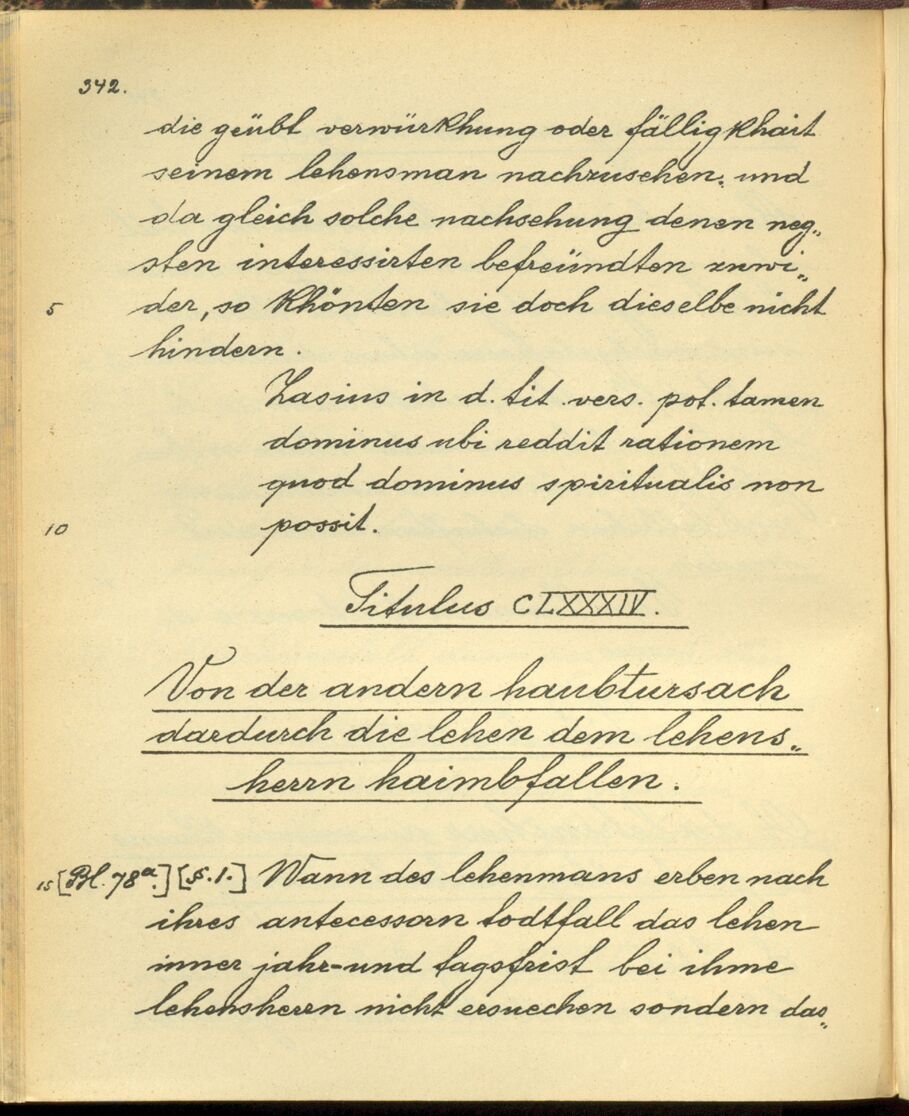 342.
die geübt verwürkhung oder fälligkhait
seinem lehensman nachzusehen, und
da gleich solche nachsehung denen neg„
sten interessirten befreündten zuwi„
5 der, so khönten sie doch dieselbe nicht
hindern.
Zasius in d. tit. vers. pot. tamen
dominus ubi reddit rationem
quod dominus spiritualis non
10 possit.
Titulus CLXXXIV.
Von der andern haubtursach
dardurch die lehen dem lehens„
herrn haimbfallen.
15 [Bl. 78a.] [§.1.] Wann des lehenmans erben nach
ihres antecessorn todtfall das lehen
inner jahr- und tagsfrist bei ihme
lehensherrn nicht ersuechen sondern das„